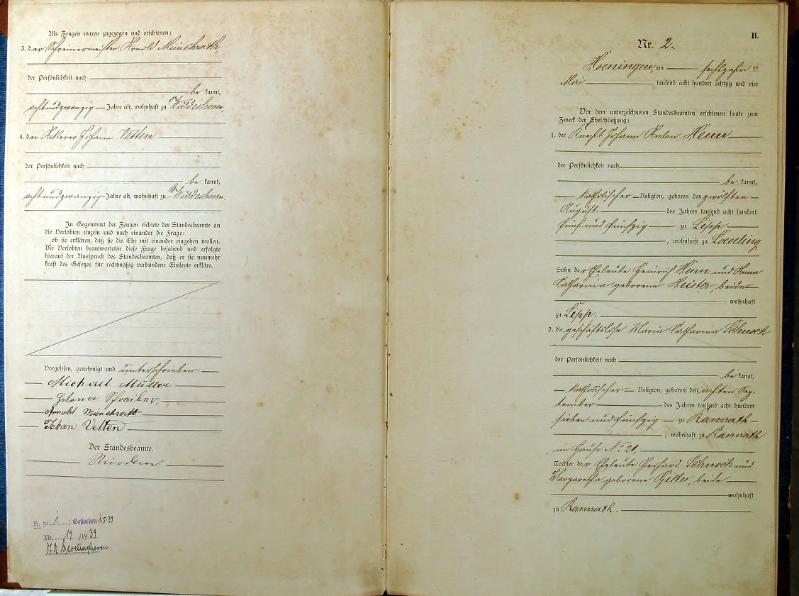 Als Zeugen waren zugezogen und erschienen:
3. der Schreinermeister Arnold Münchrath,
der Persönlichkeit nach
be kannt,
achtundzwanzig Jahre alt, wohnhaft zu Widdeshoven
4. der Ackerer Johann Vetten
der Persönlichkeit nach
be kannt,
achtundzwanzig Jahre alt, wohnhaft zu Widdeshoven.
In Gegenwart der Zeugen richtete der Standesbeamte an
die Verlobten einzeln und nach einander die Frage:
ob sie erklären, daß sie die Ehe mit einander eingehen wollen.
Die Verlobten beantworteten diese Frage bejahend und erfolgte
hierauf der Ausspruch des Standesbeamten, daß er sie nunmehr
kraft des Gesetzes für rechtmäßig verbundene Eheleute erkläre.
Vorgelesen, genehmigt und unterschrieben
Michael Müller
Arnold Münchrath
Johan Vetten
Der Standesbeamte.
B.
Nr. 2.
Hoeningen, am sechszehnten
Mai tausend acht hundert achtzig und vier
Vor dem unterzeichneten Standesbeamten erschienen heute zum
Zweck der Eheschließung:
1. der Knecht Johann Anton Heim
der Persönlichkeit nach
be kannt,
katholischer Religion, geboren den zwölften
August des Jahres tausend acht hundert
fünf und fünfzig zu Lipp
, wohnhaft zu
Sohn der Eheleute Heinrich Heim und Anna
Catharina geborene Heister, beide
wohnhaft
zu Lipp.
2. die geschäftslose Maria Catharina Schnock
der Persönlichkeit nach
be kannt,
katholischer Religion, geboren den achten Sep
tember des Jahres tausend acht hundert
sieben und fünfzig zu Ramrath
, wohnhaft zu Ramrath
im Hause No. 21,
Tochter der Eheleute Gerhard Schnock und
Margaretha geborene beide
wohnhaft
zu Ramrath.